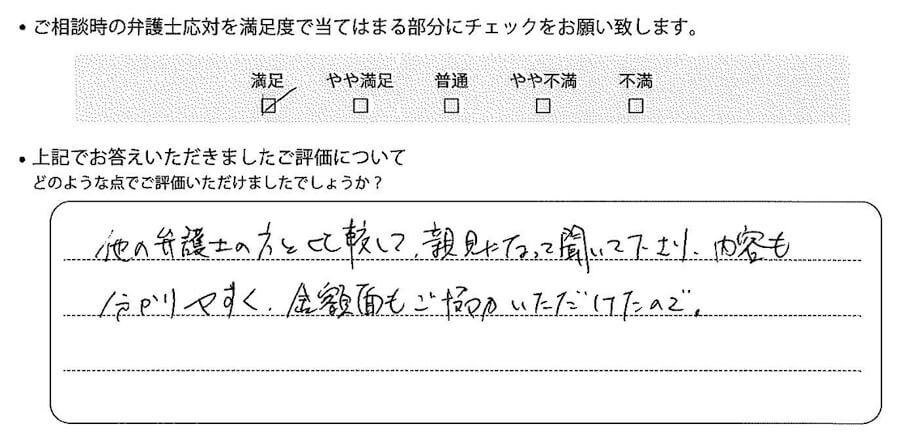 • ご相談時の弁護士応対を満足度で当てはまる部分にチェックをお願い致します。
満足 やや満足 普通 やや不満 不満
☑ □ □ □ □
• 上記でお答えいただきましたご評価について
どのような点でご評価いただけましたでしょうか？
他の弁護士の方と比較して、親見になって聞いて下さり、内容も
分かりやすく、金額面もご協力いただけたので。